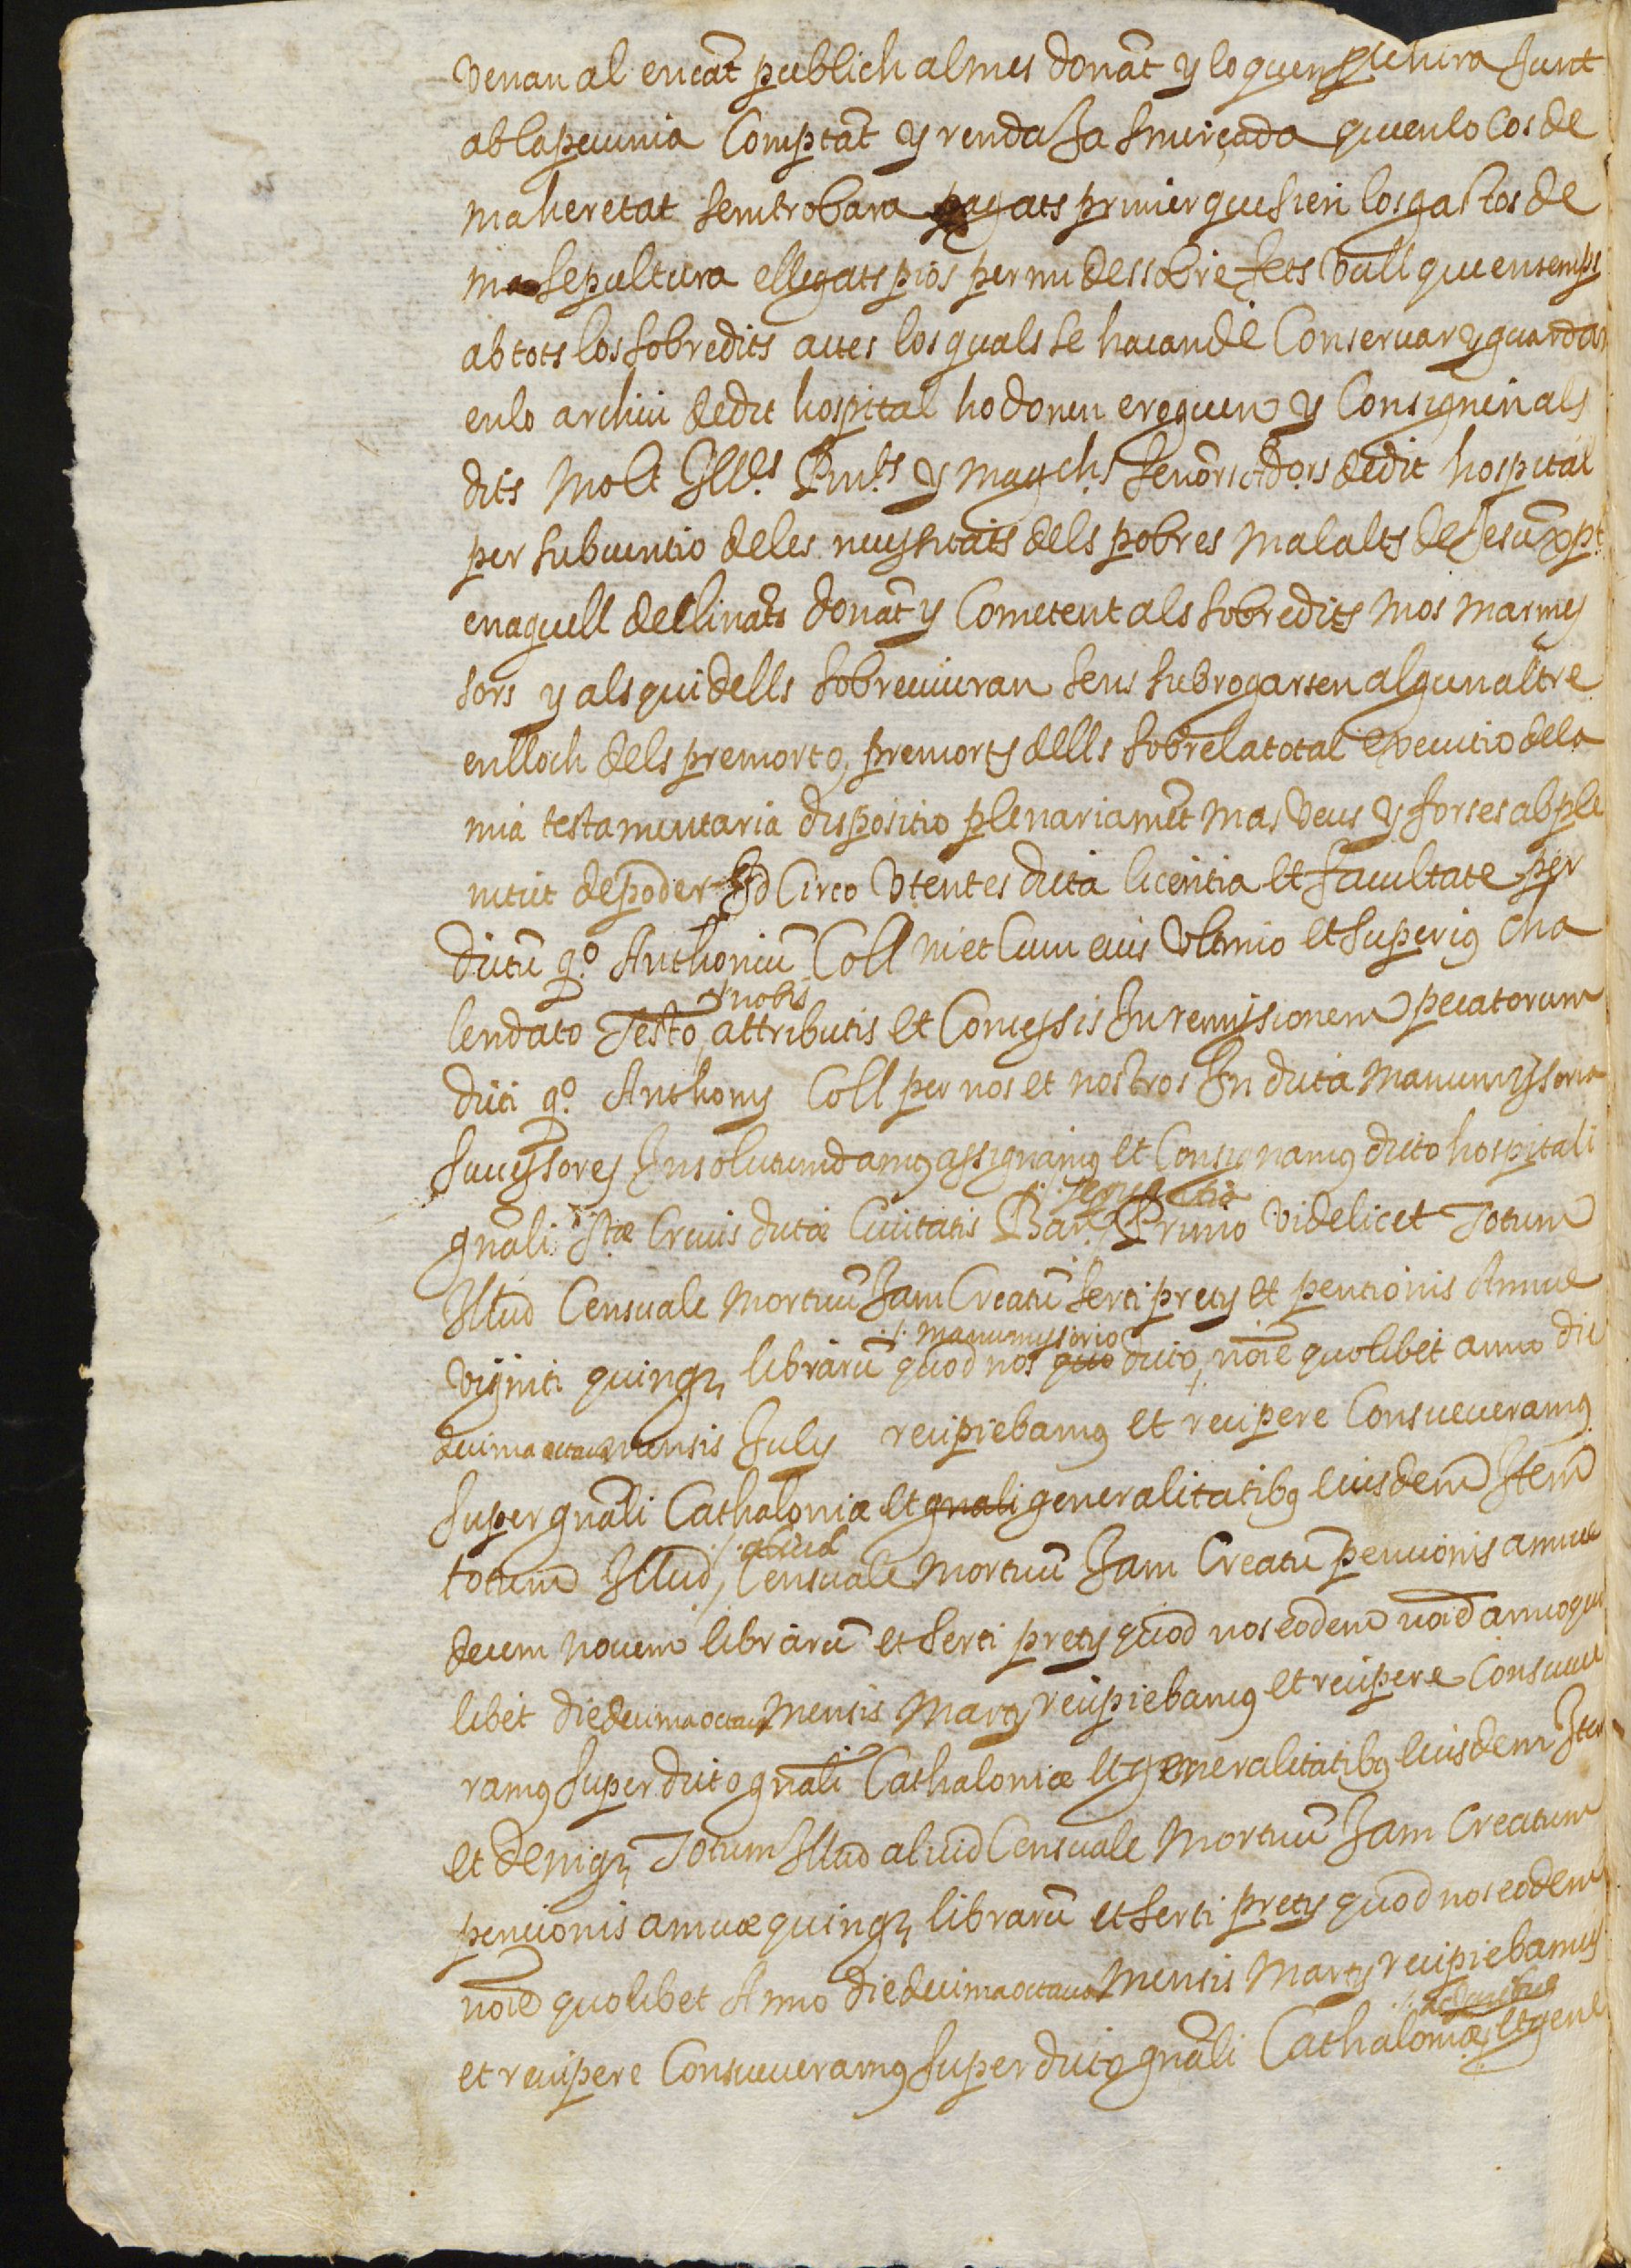 venan al encāt publich al mes donāt y lo quen junt
ab la pecunia Comptāt y renda Ja Smirçada que en lo Cos de
ma heretat sem trobara pagats primer que sien los gastos de
ma sepultura e llegats pios per mi dessobre fets vull que ensemps
ab tots los sobredits actes los quals se hauan de Conservar y guardar
en lo archiu de dit hospital ho donen eroguen y Consignin als
dits Molt Illes. Rnts y magchs senōrs ādors de dit hospital
per subuentio de les necyssitats dels pobres Malalts de Jesu Xpt
en aquell declinats donāt y Cometent als sobredits Mos Marmy
sors y als qui dells sobreviuran sens subrogarsen algun altre
en lloch dels premort o, premorts dells sobre la total executio dela
mia testamentaria dispositio plenariamēt mas veus y forses ab ple
nitut de poder Id Circo Vtentes dicta licentia et facultate per
dictū qo. Anthoniū Coll niet Cum eius Vltimo et superiꝯ Cha
lendato Testo, ./. nobis attributis et Concyssis In remyssionem pecatorum
dicti qo. Anthony Coll per nos et nostros In dicta Manumyssoria
Sucyssores Insolutumdamꝯ assignamꝯ et Consignamꝯ dicto hospitali
gnāli Stæ Crucis dictæ Ciuitatis Bar. Primo videlicet Totum
Illud Censuale Mortuū Jam Creatū serti pretÿ et pentionis Annue
viginti quinqꝫ librarū quod nos quo dicto, ./. manumyssorio noīe quolibet anno die
decima octaua mensis July recipiebamꝯ et recipere Consueueramꝯ
super gnāli Cathaloniæ et gnali generalitatibꝯ eiusdem Item
totum Illud, ./. aliud Censuale Mortuū Jam Creatū pencionis annue
decem nouem librarū et serti pretÿ quod nos eodem noīe anno quo
libet die decima octaua Mensis Marty recipiebamꝯ et recipere Consueue
ramꝯ super dicto gnāli Cathaloniæ et generalitatibꝯ eiusdem Item
et deniqꝫ Totum Illud aliud Censuale Mortuū Jam Creatum
pencionis annuæ quinqꝫ librarū et serti pretÿ quod nos eodem
noīe quolibet Anno die decima octaua Mensis Martÿ recipiebamꝯ
et recipere Consueueramꝯ super dicto gnāli Cathaloniæ, et gene